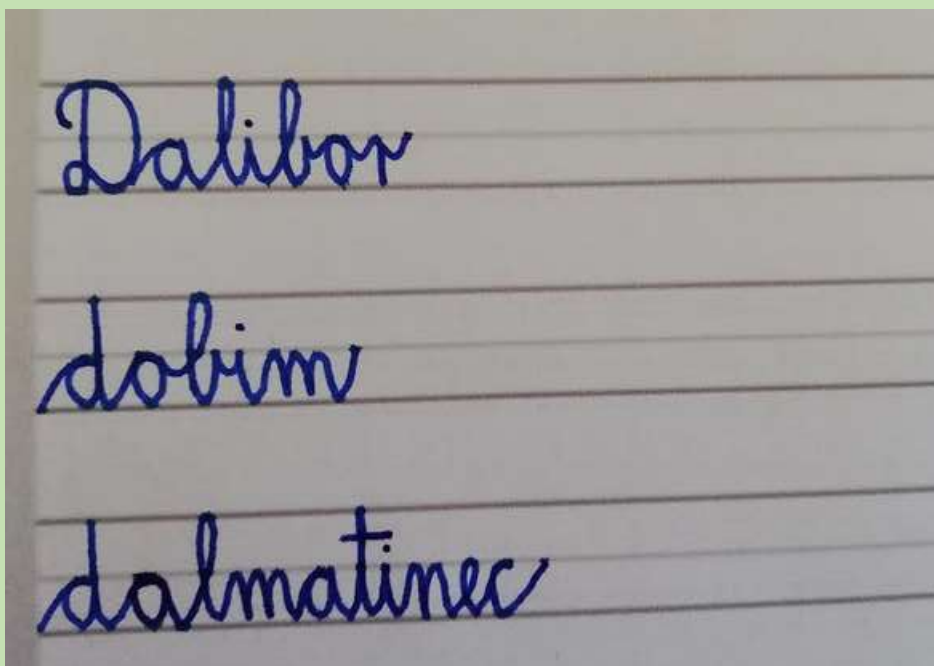 Dalibor
dobim
dalmatinec